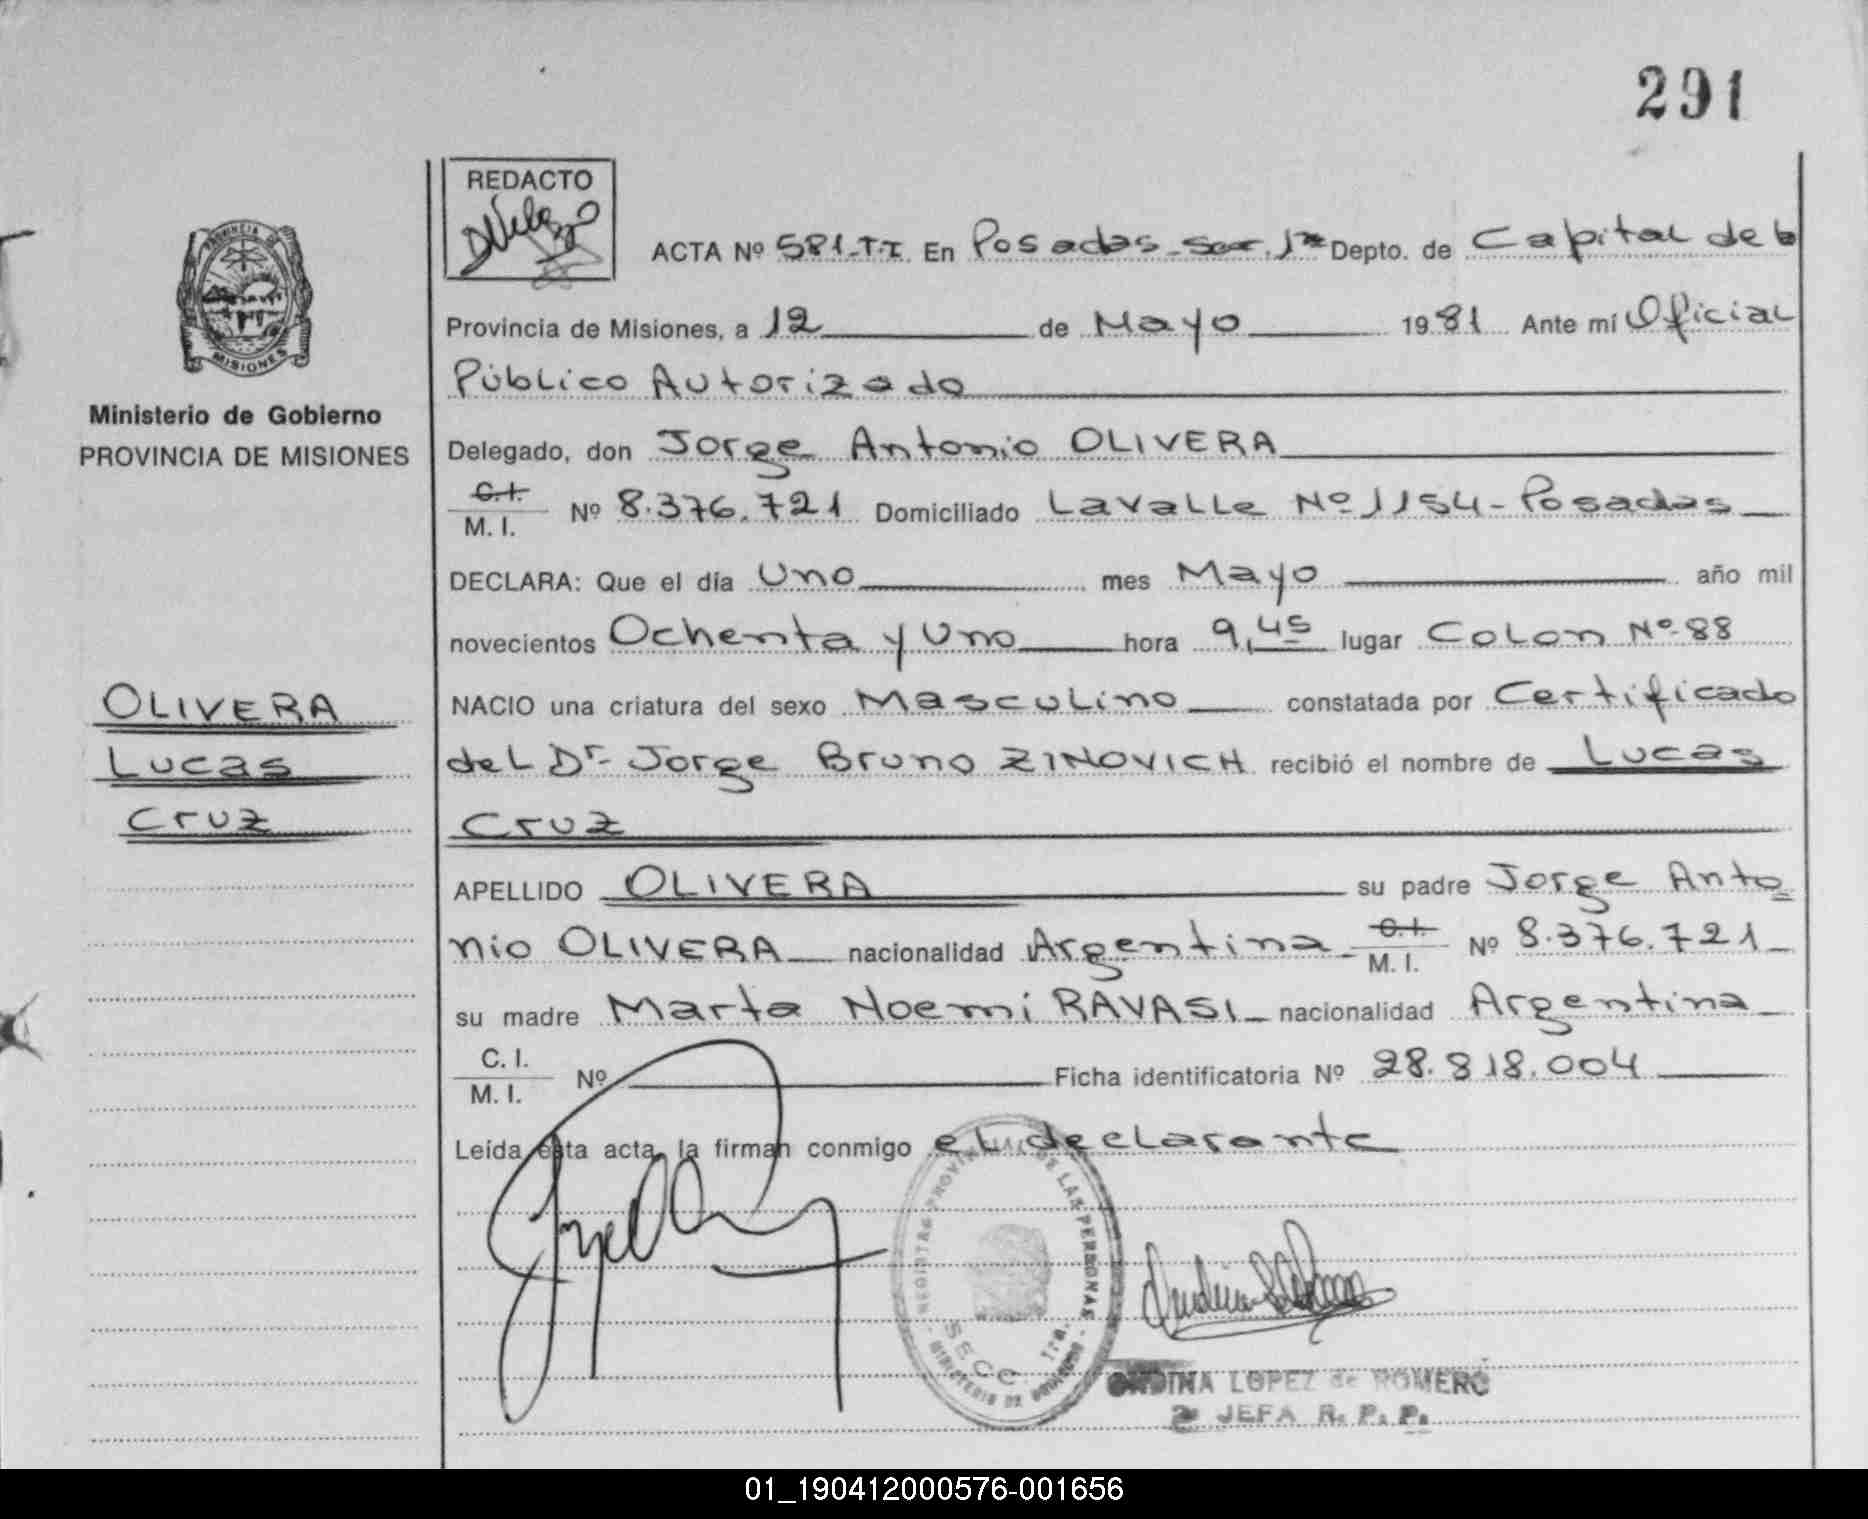 291
REDACTO
PROVINCIA DE
MISIONES
Ministerio de Gobierno
PROVINCIA DE MISIONES
OLIVERA
Lucas
Cruz
ACTA Nº 581-T.I. En Posadas-Secc. 1ra Depto. de Capital de la
Provincia de Misiones, a 12 de Mayo 1981 Ante mí Oficial
Público Autorizado
Delegado, don Jorge Antonio OLIVERA
C.I.
M. I. Nº 8.376.721 Domiciliado Lavalle Nº 1154-Posadas
DECLARA: Que el día Uno mes Mayo año mil
novecientos Ochenta y Uno hora 9,45 lugar Colon Nº-88
NACIO una criatura del sexo Masculino constatada por Certificado
del Dr- Jorge Bruno ZINOVICH recibió el nombre de Lucas
Cruz
APELLIDO OLIVERA su padre Jorge Anto
nio OLIVERA nacionalidad Argentina C.I.
M. I. Nº 8.376.721
su madre Marta Noemí RAVASI nacionalidad Argentina
C. I.
M. I. Nº Ficha identificatoria Nº 28.818.004
Leída esta acta, la firman conmigo el declarante
REGISTRO PROVINCIAL DE LAS PERSONAS
SECC. 1ra.
MINISTERIO DE GOBIERNO
ONDINA LOPEZ de ROMERO
2º JEFA R. P. P.
01_190412000576-001656